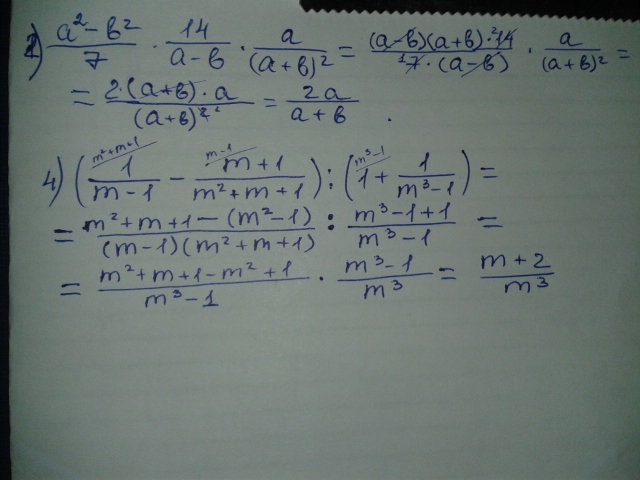 2) (a² - в²)/7 · 14/(a - в) · a/(a + в)² = ((a - в)(a + в) · ²14)/(¹7 · (a - в)) · a/(a + в)² =
= (2·(a + в) · a)/(a + в)² = 2a/(a + в) .
4) (1/(m - 1) - (m + 1)/(m² + m + 1)) : (1 + 1/(m³ - 1)) =
= (m² + m + 1 - (m² - 1))/((m - 1)(m² + m + 1)) : (m³ - 1 + 1)/(m³ - 1) =
= (m² + m + 1 - m² + 1)/(m³ - 1) · (m³ - 1)/m³ = (m + 2)/m³